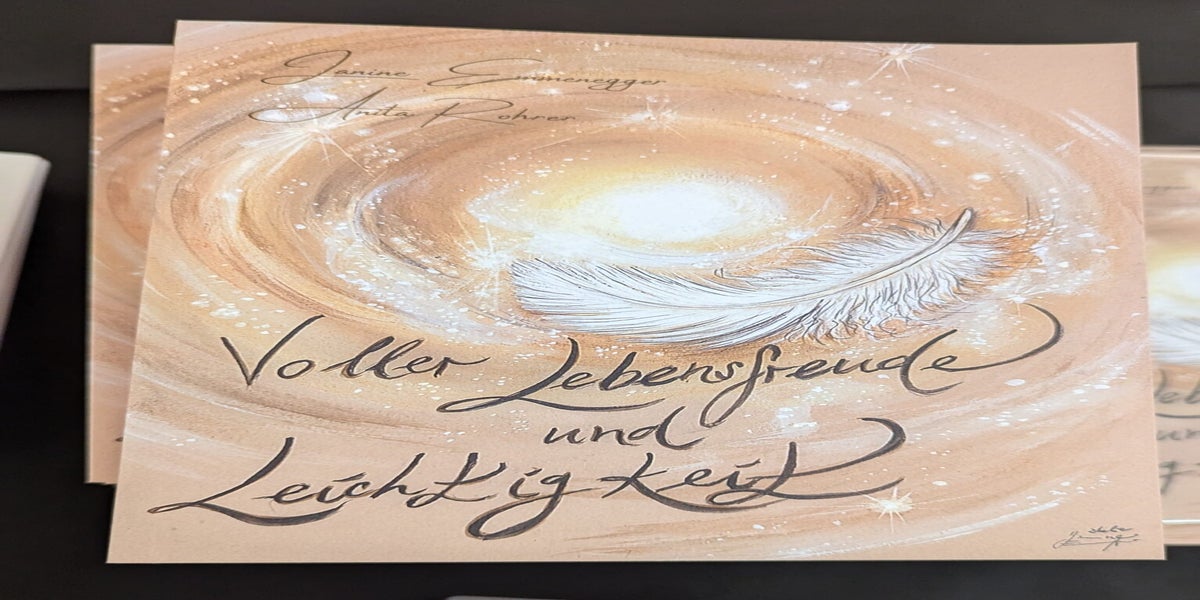 Janine Emmenegger
Anita Rohrer
Voller Lebensfreude
und
Leichtigkeit